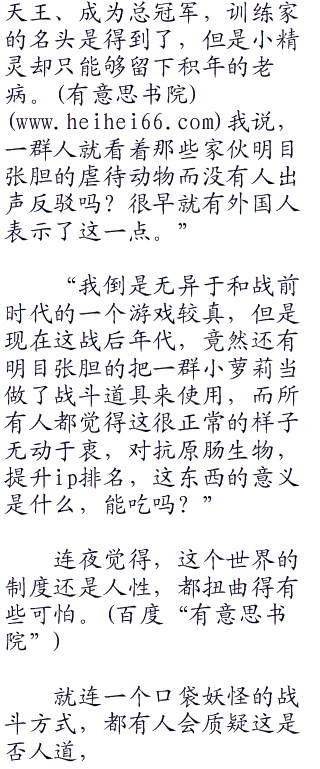 天王、成为总冠军，训练家
的名头是得到了，但是小精
灵却只能够留下积年的老
病。(有意思书院)
(www.heihei66.com)我说，
一群人就看着那些家伙明目
张胆的虐待动物而没有人出
声反驳吗？很早就有外国人
表示了这一点。”
“我倒是无异于和战前
时代的一个游戏较真，但是
现在这战后年代，竟然还有
明目张胆的把一群小萝莉当
做了战斗道具来使用，而所
有人都觉得这很正常的样子
无动于衷，对抗原肠生物，
提升ip排名，这东西的意义
是什么，能吃吗？”
连夜觉得，这个世界的
制度还是人性，都扭曲得有
些可怕。(百度“有意思书
院”)
就连一个口袋妖怪的战
斗方式，都有人会质疑这是
否人道，